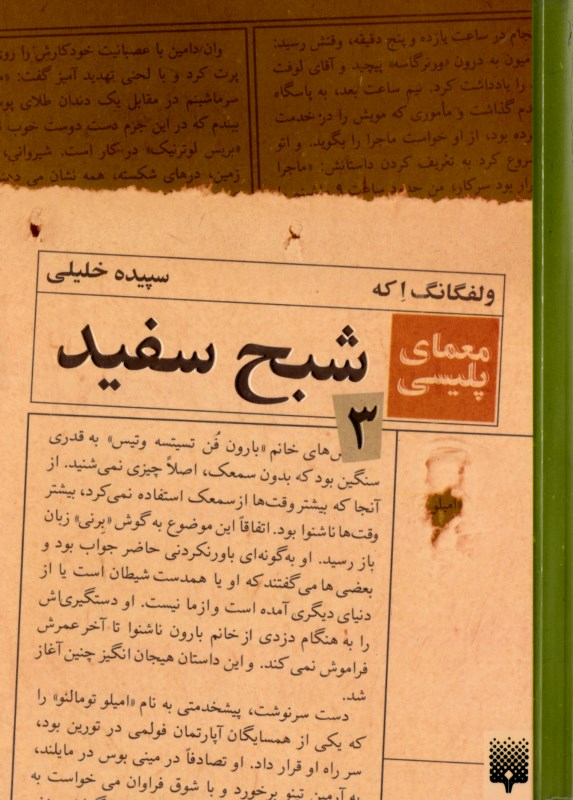 نجام در ساعت یازده و پنج دقیقه، وقتش رسید:
میون به درون «ورنرگاسه» پیچید و آقای لوفت
را یادداشت کرد. نیم ساعت بعد، به پاسگاه
دم گذاشت و مأموری که مویش را در خدمت
رده بود، از او خواست ماجرا را بگوید. و اتو
سروع کرد به تعریف کردن داستانش: «ماجرا
رار بود سرکار، من حدود ساعت ۹
وان/دامین با عصبانیت خودکارش را روی
پرت کرد و با لحنی تهدید آمیز گفت:
سرماشینم در مقابل یک دندان طلای پو
ببندم که در این جرم دست دوست خوب
«بریس لوترنیک» در کار است. شیروانی،
زمین، درهای شکسته، همه نشان می
ولفگانگ اِکه
سپیده خلیلی
معمای
پلیسی
شبح سفید
۳
ش‌های خانم «بارون فُن تسیتسه وتیس» به قدری
سنگین بود که بدون سمعک، اصلاً چیزی نمی‌شنید. از
آنجا که بیشتر وقت‌ها از سمعک استفاده نمی‌کرد، بیشتر
وقت‌ها ناشنوا بود. اتفاقاً این موضوع به گوش «برنی» زبان
باز رسید. او به‌گونه‌ای باورنکردنی حاضر جواب بود و
بعضی‌ها می‌گفتند که او یا همدست شیطان است یا از
دنیای دیگری آمده است و از ما نیست. او دستگیری‌اش
را به هنگام دزدی از خانم بارون ناشنوا تا آخر عمرش
فراموش نمی کند. و این داستان هیجان انگیز چنین آغاز
شد.
دست سرنوشت، پیشخدمتی به نام «امیلو تومالنو» را
که یکی از همسایگان آپارتمان فولمی در تورین بود،
سر راه او قرار داد. او تصادفاً در مینی بوس در مایلند،
به آرمین تینو برخورد و با شوق فراوان می خواست به
امیلو